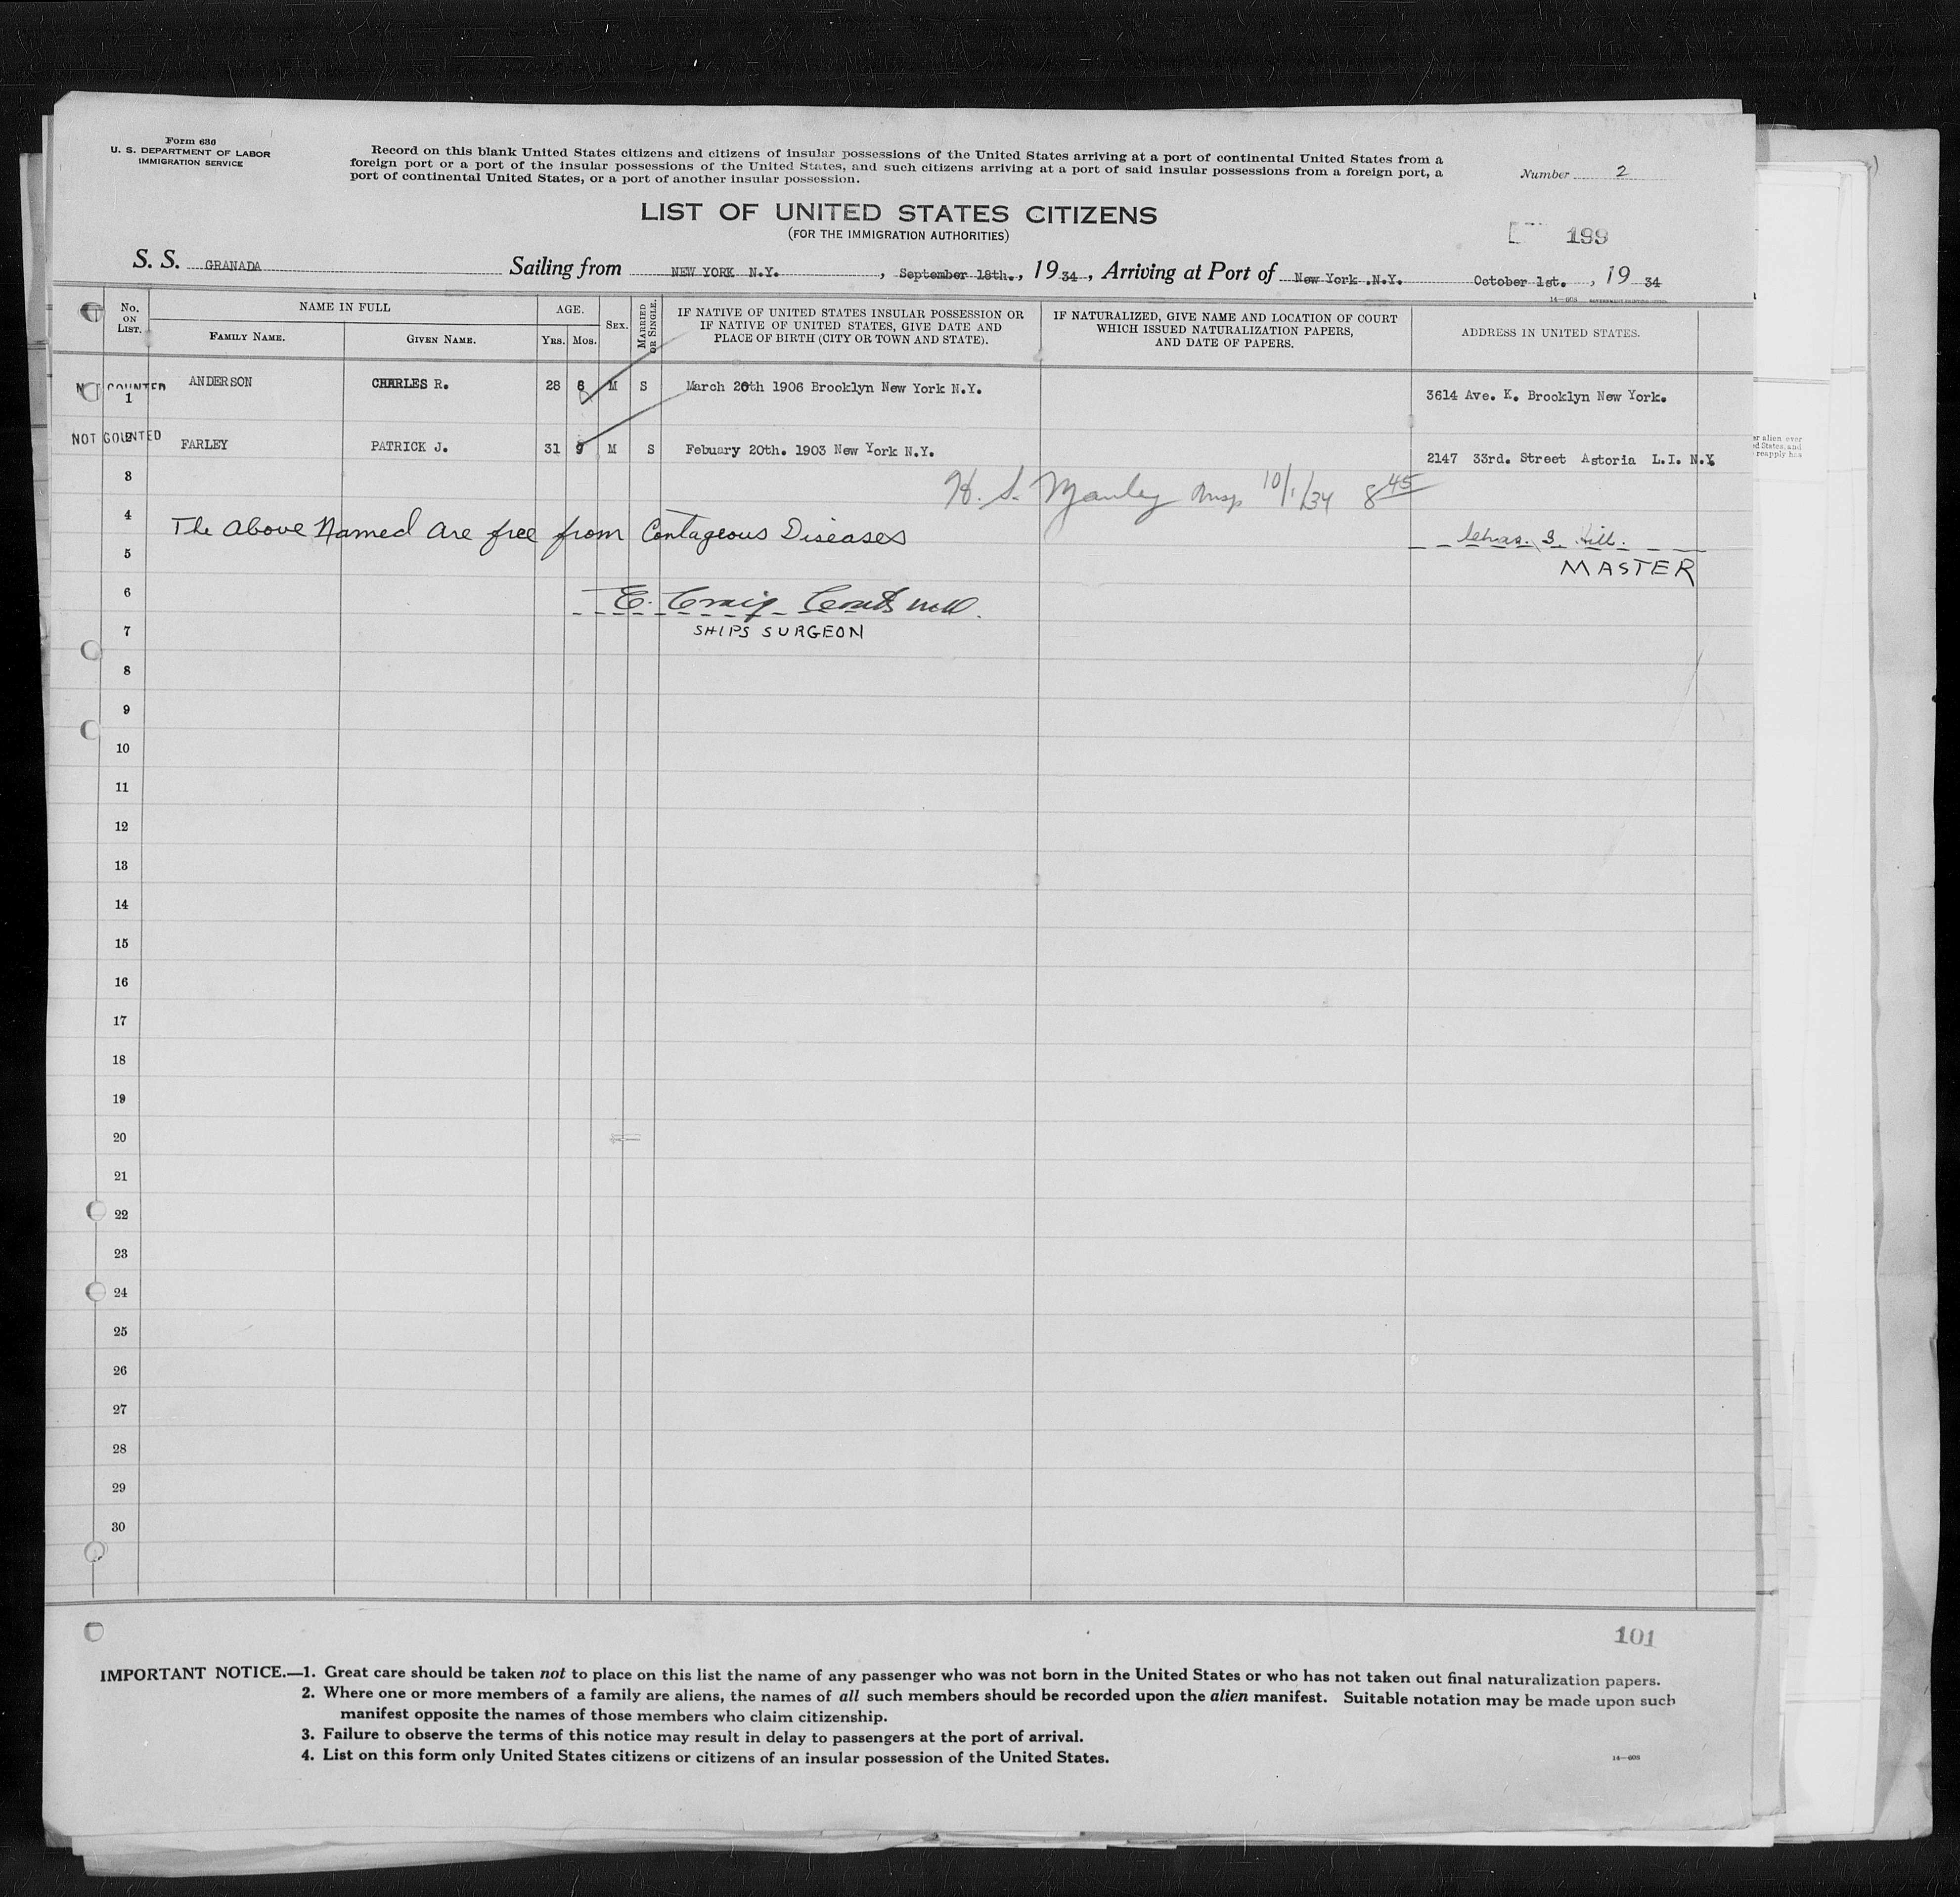 Form 630
U. S. DEPARTMENT OF LABOR
IMMIGRATION SERVICE
Record on this blank United States citizens and citizens of insular possessions of the United States arriving at a port of continental United States from a
foreign port or a port of the insular possessions of the United States, and such citizens arriving at a port of said insular possessions from a foreign port, a
port of continental United States, or a port of another insular possession.
Number 2
LIST OF UNITED STATES CITIZENS
(FOR THE IMMIGRATION AUTHORITIES)
199
S. S. GRANADA Sailing from NEW YORK N.Y. , September 18th. , 19 34 , Arriving at Port of New York .N.Y. October 1st. , 19 34
No. ON LIST.
NAME IN FULL
FAMILY NAME.
GIVEN NAME.
AGE.
YRS. MOS.
SEX.
MARRIED OR SINGLE.
IF NATIVE OF UNITED STATES INSULAR POSSESSION OR
IF NATIVE OF UNITED STATES, GIVE DATE AND
PLACE OF BIRTH (CITY OR TOWN AND STATE).
IF NATURALIZED, GIVE NAME AND LOCATION OF COURT
WHICH ISSUED NATURALIZATION PAPERS,
AND DATE OF PAPERS.
ADDRESS IN UNITED STATES.
NOT COUNTED
1 ANDERSON CHARLES R. 28 8 M S March 20th 1906 Brooklyn New York N.Y. 3614 Ave. K. Brooklyn New York.
NOT COUNTED
2 FARLEY PATRICK J. 31 9 M S Febuary 20th. 1903 New York N.Y. 2147 33rd. Street Astoria L.I. N.Y.
3
H. S. Manley Insp 10/1/34 8 45
4
The Above Named Are free from Contageous Diseases
Chas. Hill.
5
MASTER
6
E. Craig
7
SHIPS SURGEON
8
9
10
11
12
13
14
15
16
17
18
19
20
21
22
23
24
25
26
27
28
29
30
101
IMPORTANT NOTICE.—1. Great care should be taken not to place on this list the name of any passenger who was not born in the United States or who has not taken out final naturalization papers.
2. Where one or more members of a family are aliens, the names of all such members should be recorded upon the alien manifest. Suitable notation may be made upon such
manifest opposite the names of those members who claim citizenship.
3. Failure to observe the terms of this notice may result in delay to passengers at the port of arrival.
4. List on this form only United States citizens or citizens of an insular possession of the United States.
14—608